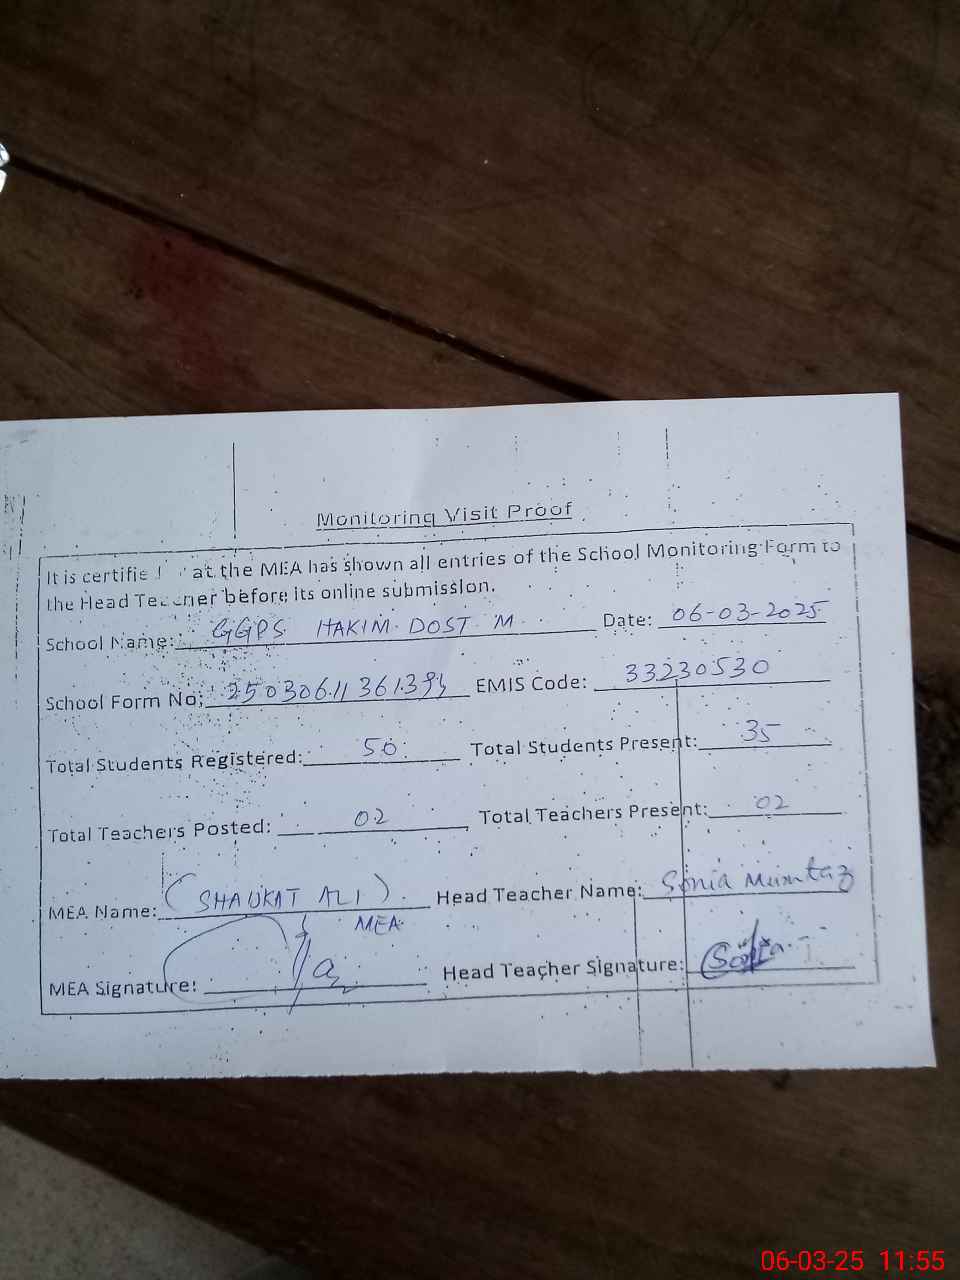 Monitoring Visit Proof
It is certified that the MEA has shown all entries of the School Monitoring Form to
the Head Teacher before its online submission.
School Name: GGPS HAKIM DOST M. Date: 06-03-2025
School Form No: EMIS Code: 33230530
Total Students Registered: 50 Total Students Present: 35
Total Teachers Posted: 02 Total Teachers Present: 02
MEA Name: (SHAUKAT ALI). Head Teacher Name: Sonia Mumtaz
MEA
MEA Signature: Head Teacher Signature: Sonia
06-03-25 11:55